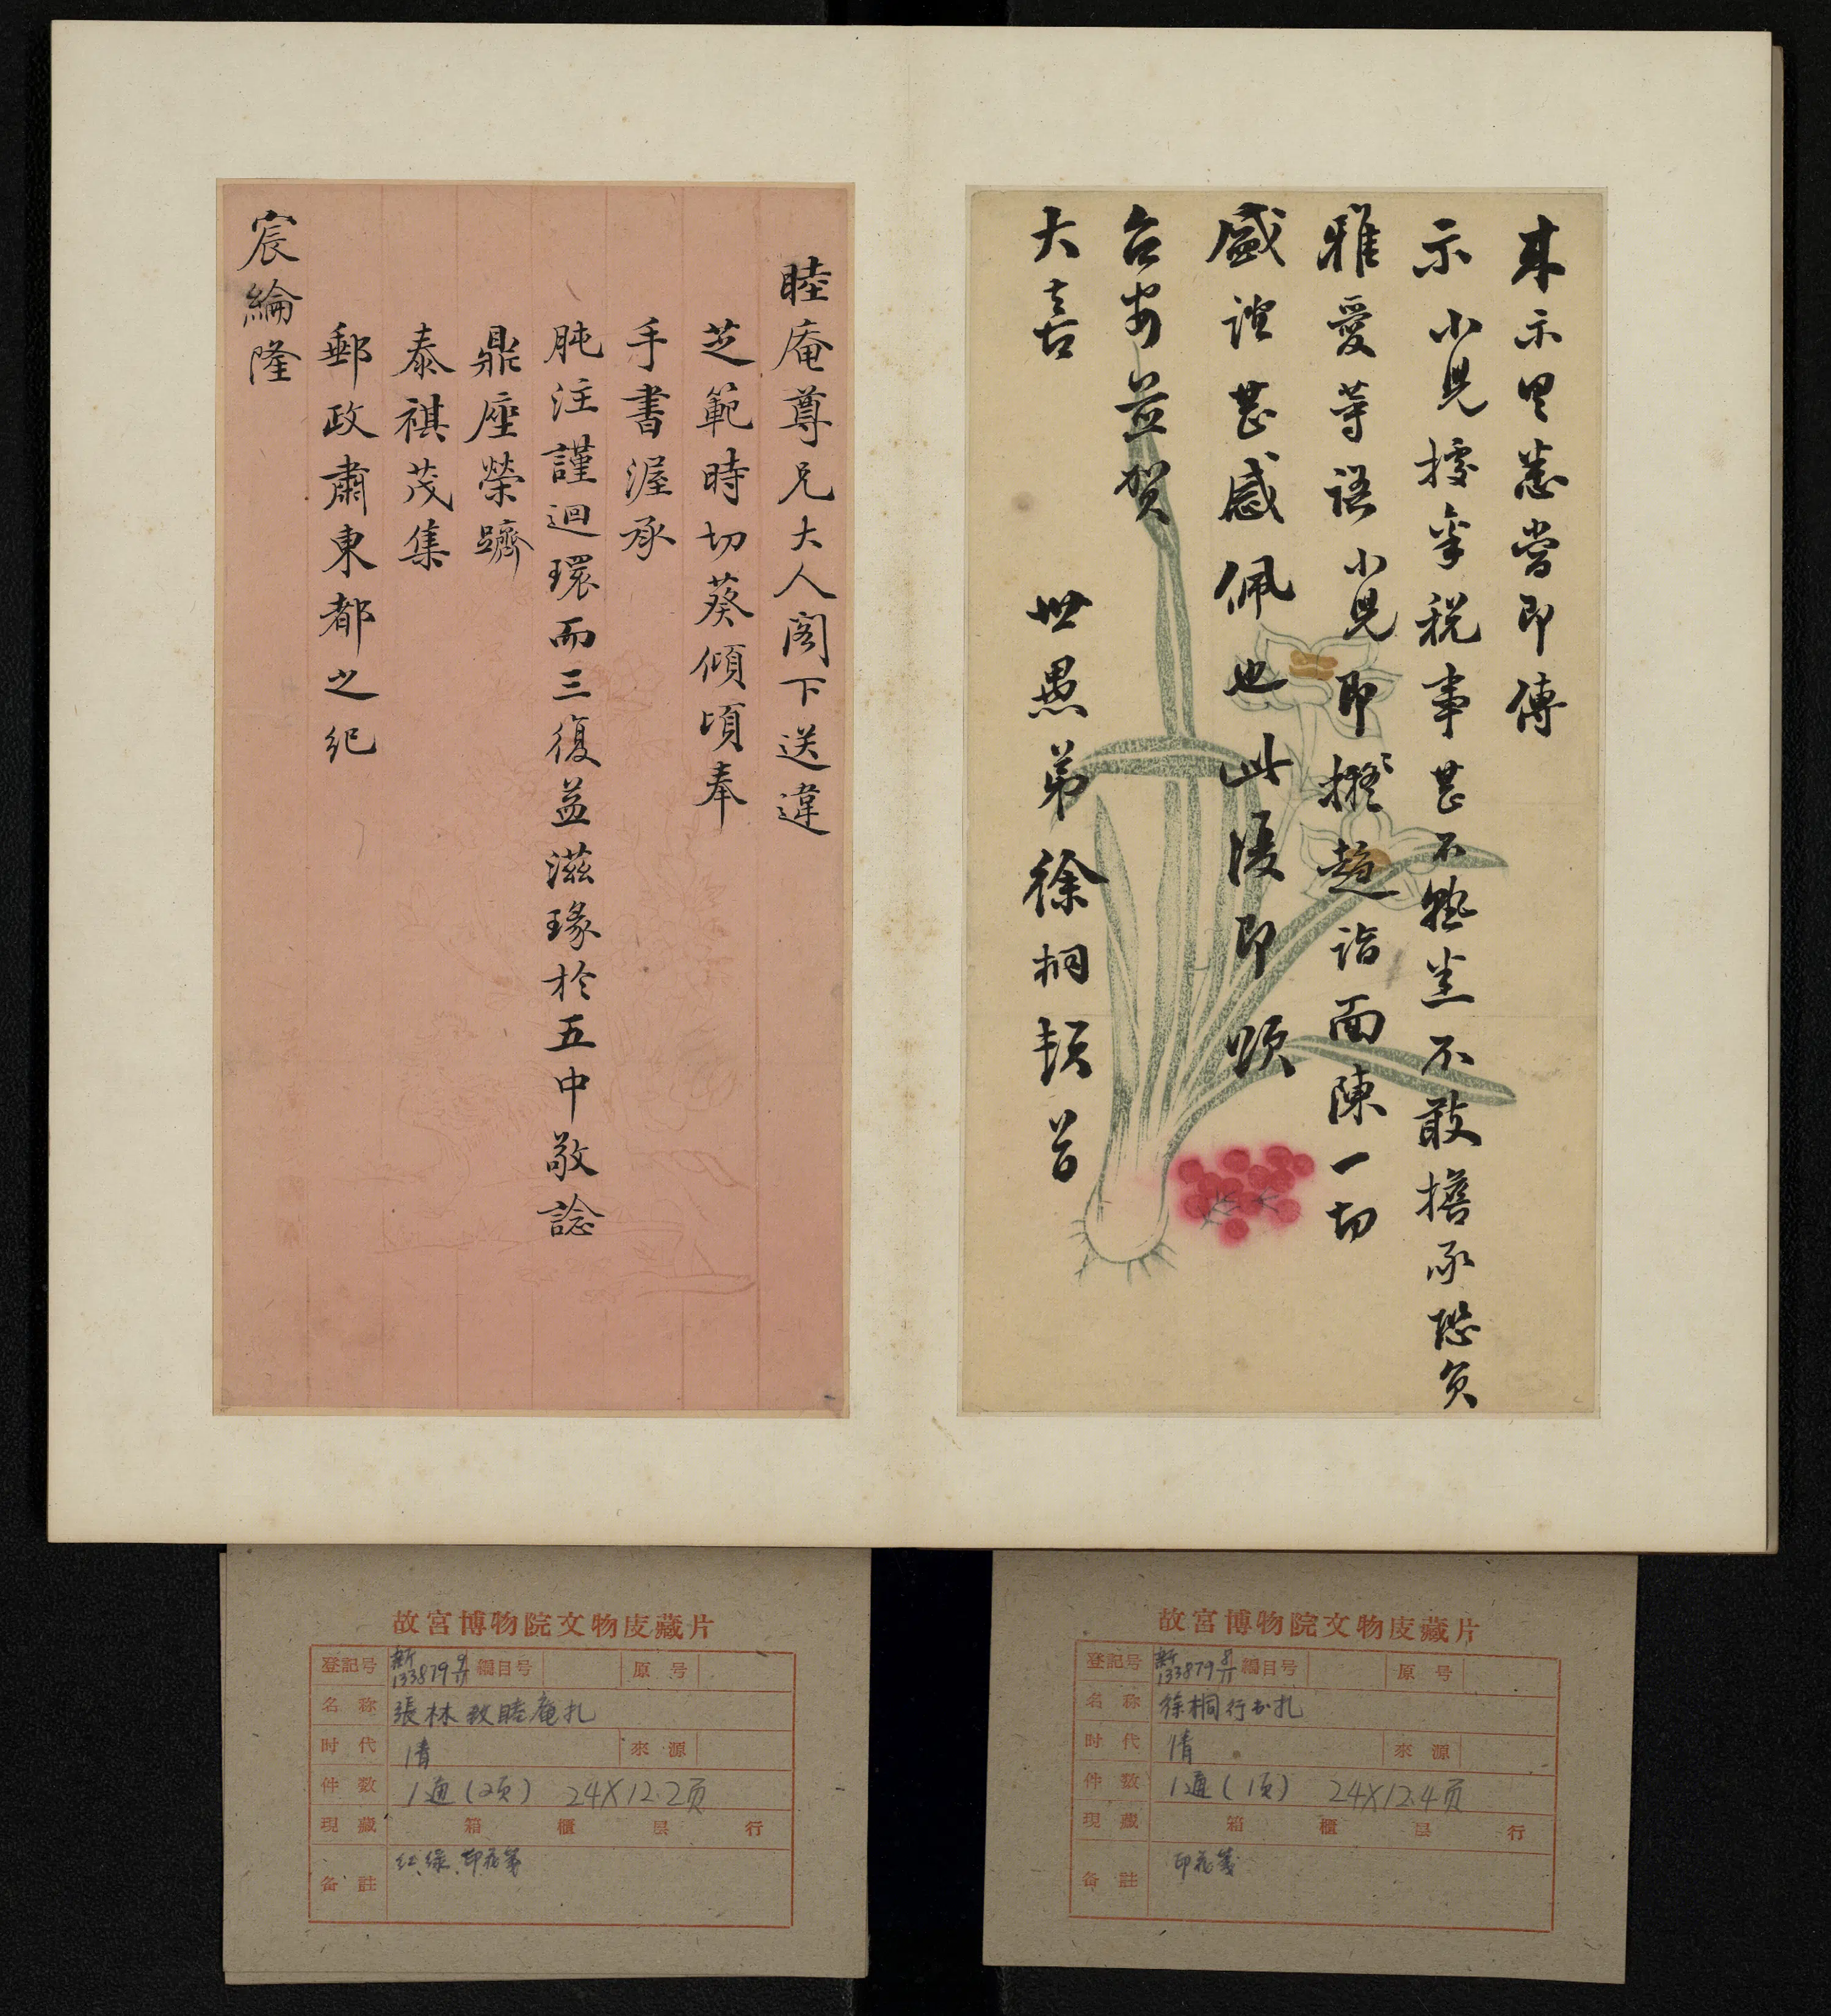 來示里悉當即傳
示小兒據拿稅事甚不熟坐不敢擔承恐負
雅愛等語小兒即擬趨詣面陳一切
盛誼甚感佩也此復即頌
台安並賀
大喜
世愚弟徐桐頓首
睦庵尊兄大人閣下送違
芝範時切葵傾頃奉
手書渥承
肫注謹迴環而三復益滋瑑於五中敬諗
鼎座榮躋
泰祺茂集
郵政肅東都之紀
宸綸隆
故宮博物院文物庋藏片
登記号 新133879 8/11 編目号 原号
名称 徐桐行书扎
时代 清 來源
件数 1通(1页) 24X12.4页
現藏 箱 櫃 层 行
备註 印花箋
故宮博物院文物庋藏片
登記号 新133879 9/11 編目号 原号
名称 張林致睦庵扎
时代 清 來源
件数 1通(2页) 24X12.2页
現藏 箱 櫃 层 行
备註 红、绿、印花箋